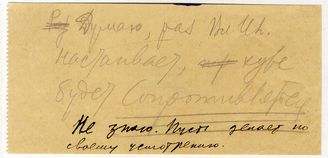 Думаю, раз Вл. Ил.
настаивает, хуже
будет сопротивляться.
Не знаю. Пусть делает по
своему усмотрению.